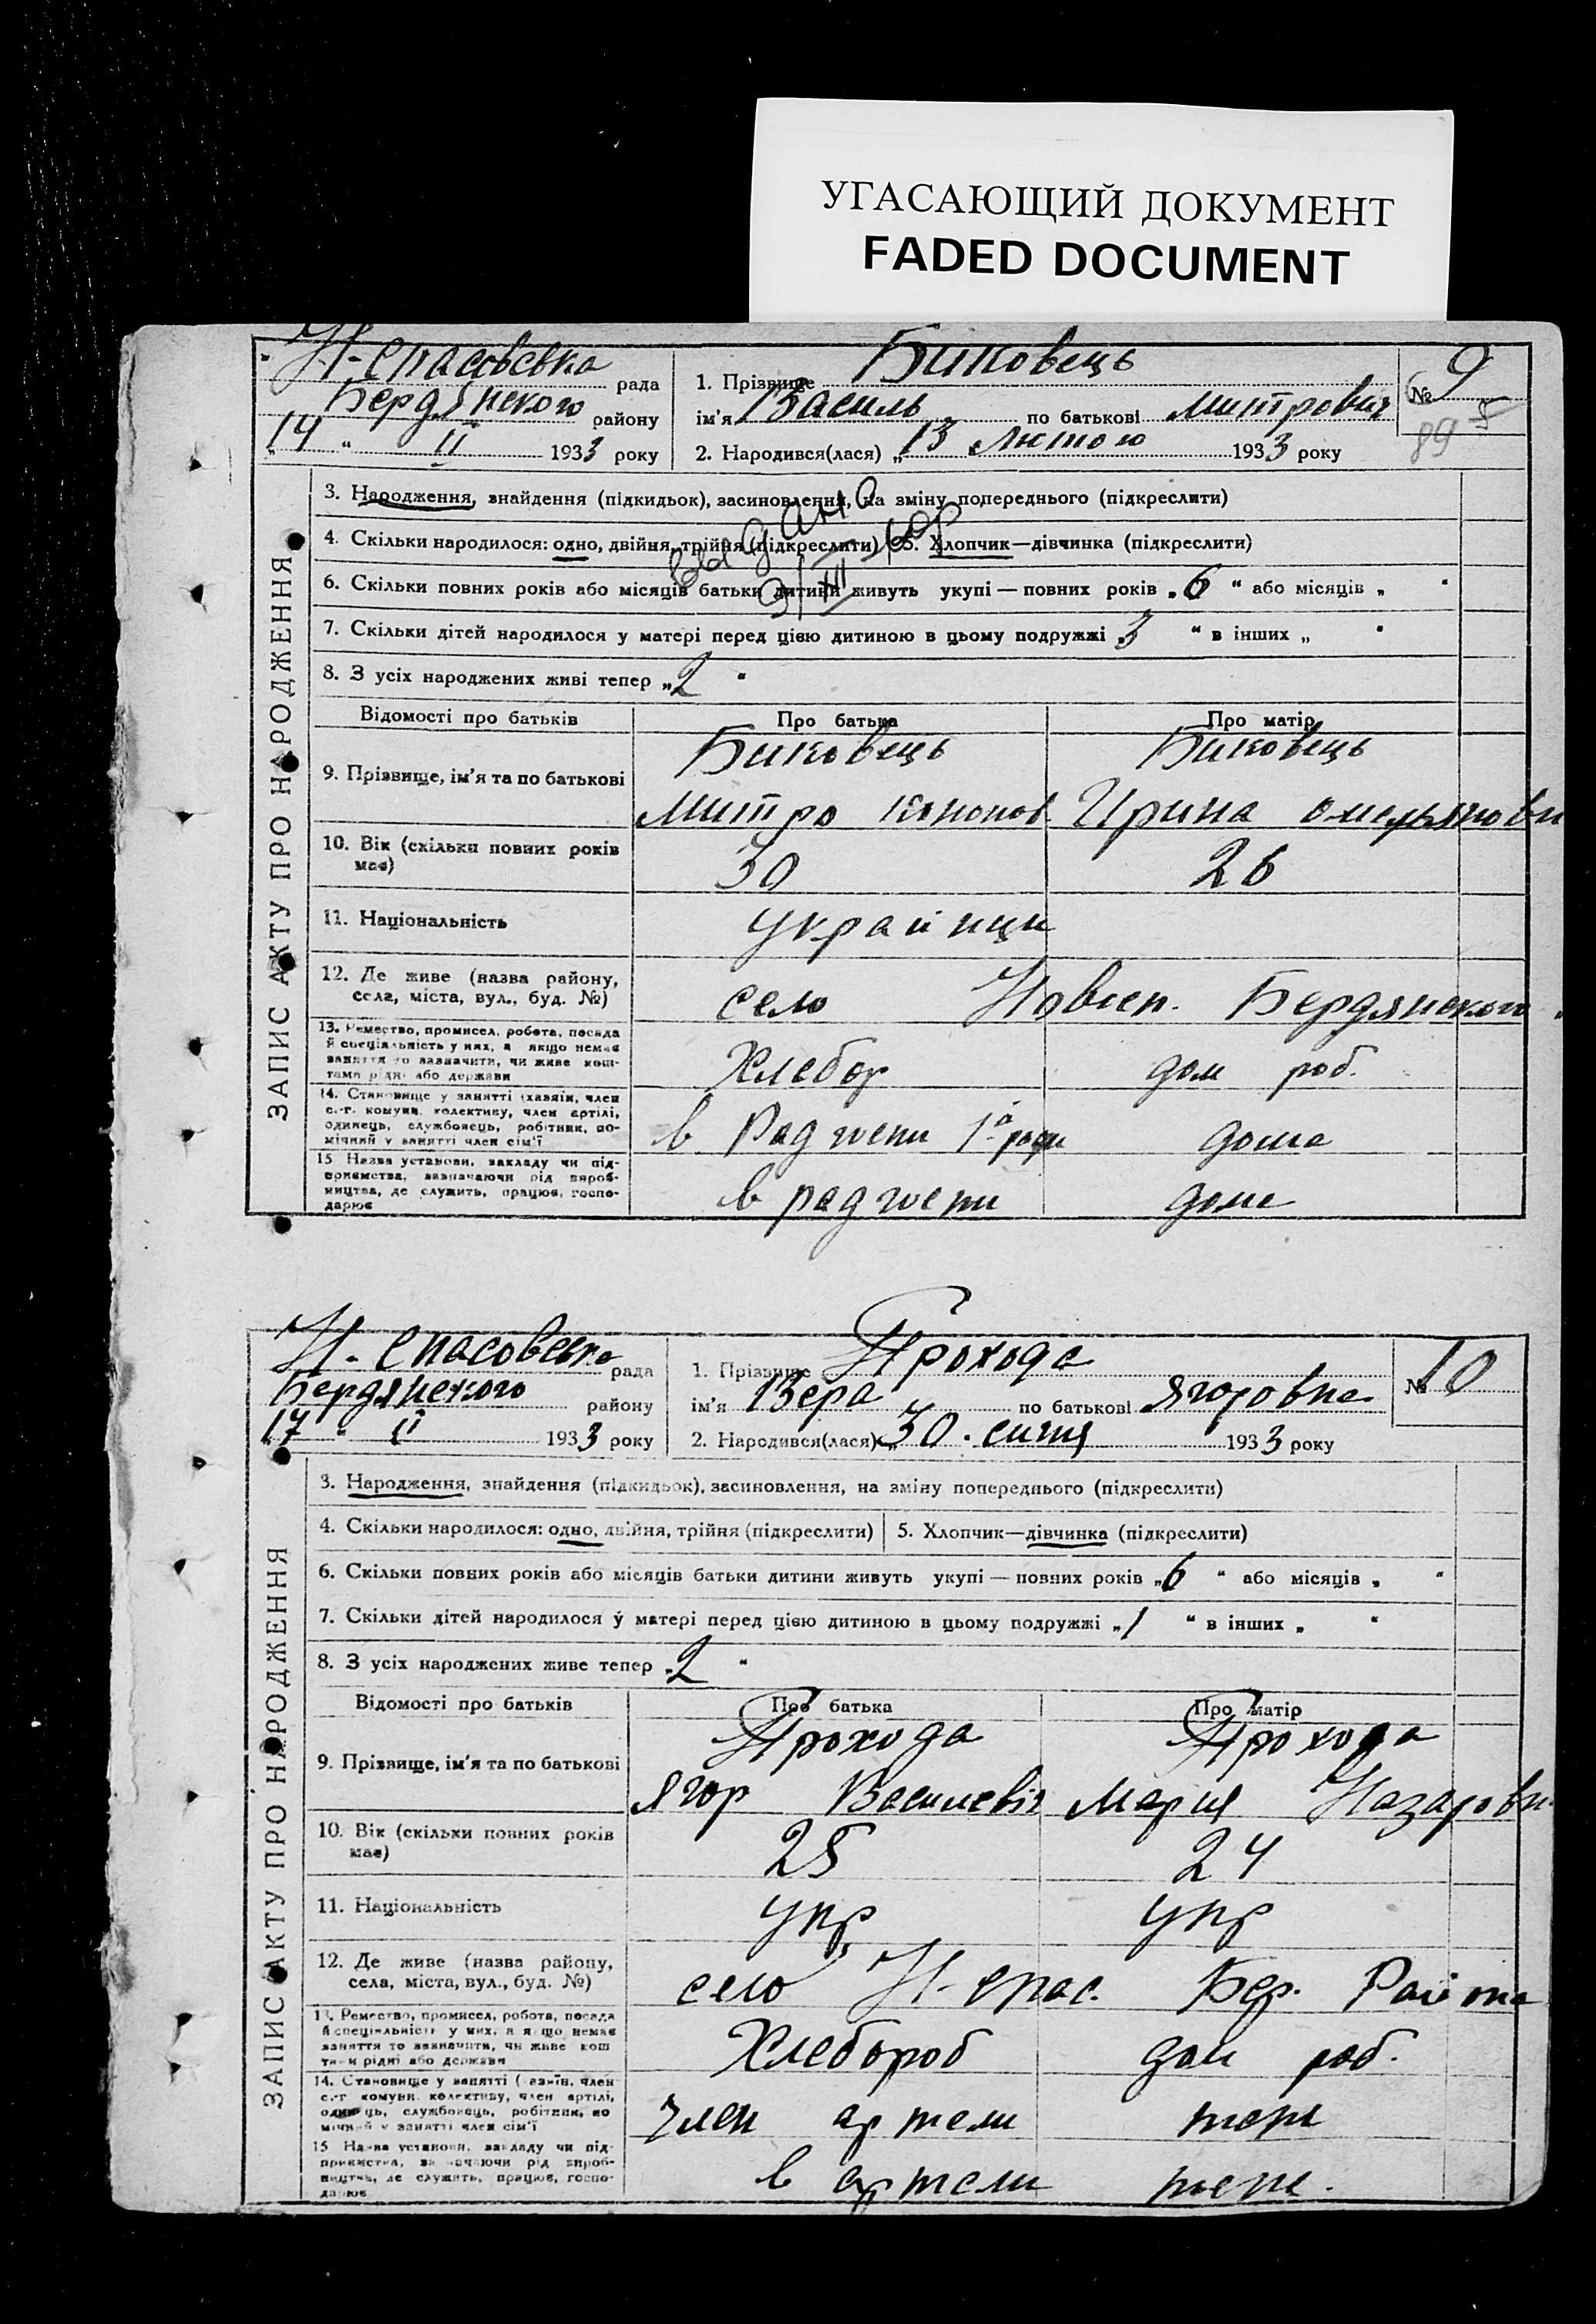 УГАСАЮЩИЙ ДОКУМЕНТ
FADED DOCUMENT
Н-Спасовсько рада
Бердянского району
14 " II 1933 року
1. Прізвище Биковець
ім'я Василь по батькові Митрович
2. Народився(лася) „13 Лютого 1933 року
№ 9
89
ЗАПИС АКТУ ПРО НАРОДЖЕННЯ
3. Народження, знайдення (підкидьок), засиновлення, на зміну попереднього (підкреслити)
4. Скільки народилося: одно, двійня, трійня (підкреслити) 5. Хлопчик—дівчинка (підкреслити)
6. Скільки повних років або місяців батьки дитини живуть укупі — повних років „6 “ або місяців „ “
7. Скільки дітей народилося у матері перед цією дитиною в цьому подружжі „3 “ в інших „ “
8. З усіх народжених живі тепер „2 “
Відомості про батьків Про батька Про матір
9. Прізвище, ім'я та по батькові Биковець Биковець
Митро Кононов Ирина омельяновн
10. Вік (скільки повних років має) 30 26
11. Національність украинци
12. Де живе (назва району, села, міста, вул., буд. №) село Новосп. Бердянского
13. Ремество, промисел, робота, посада й спеціальність у них, а якщо немає заняття то зазначити, чи живе коштами рідні або держави Хлебор дом роб.
14. Становище у занятті (хазяїн, член с.-г. комуни, колективу, член артілі, одинець, службовець, робітник, помічний у занятті член сім'ї в Радгоспи дома
15 Назва установи, закладу чи підприємства, зазначаючи рід виробництва, де служить, працює, господарює в радгоспи доме
Н-Спасовсько рада
Бердянского району
17 " II 1933 року
1. Прізвище Прохода
ім'я Вера по батькові Ягоровна
2. Народився(лася) „30. сичня 1933 року
№ 10
ЗАПИС АКТУ ПРО НАРОДЖЕННЯ
3. Народження, знайдення (підкидьок), засиновлення, на зміну попереднього (підкреслити)
4. Скільки народилося: одно, двійня, трійня (підкреслити) 5. Хлопчик—дівчинка (підкреслити)
6. Скільки повних років або місяців батьки дитини живуть укупі — повних років „6 “ або місяців „ “
7. Скільки дітей народилося у матері перед цією дитиною в цьому подружжі „1 “ в інших „ “
8. З усіх народжених живе тепер „2 “
Відомості про батьків Про батька Про матір
9. Прізвище, ім'я та по батькові Прохода Прохода
Ягор Василевіч Мария Назаровн
10. Вік (скільки повних років має) 25 24
11. Національність укр укр
12. Де живе (назва району, села, міста, вул., буд. №) село Н-спас. Бер. Района
13. Ремество, промисел, робота, посада й спеціальність у них, а якщо немає заняття то зазначити, чи живе коштами рідні або держави Хлебороб дом роб.
14. Становище у занятті (хазяїн, член с.-г. комуни, колективу, член артілі, одинець, службовець, робітник, помічний у занятті член сім'ї член артели
15 Назва установи, закладу чи підприємства, зазначаючи рід виробництва, де служить, працює, господарює в артели